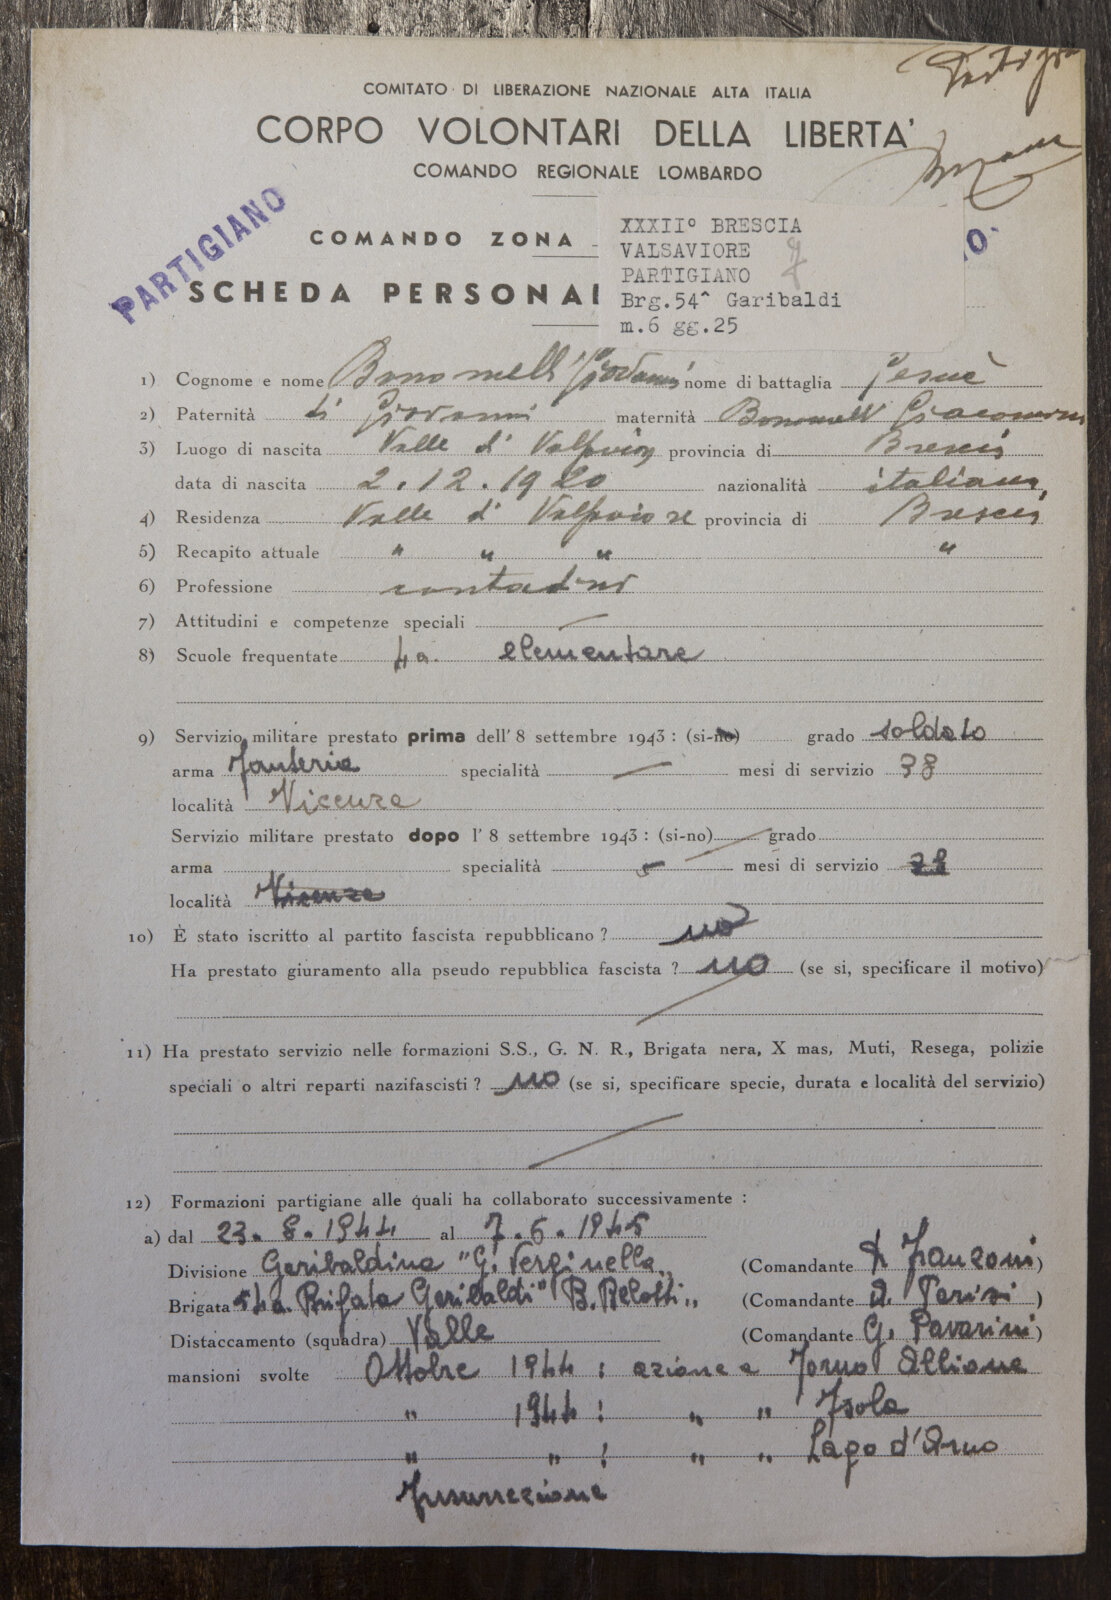 COMITATO DI LIBERAZIONE NAZIONALE ALTA ITALIA
CORPO VOLONTARI DELLA LIBERTA'
COMANDO REGIONALE LOMBARDO
PARTIGIANO
COMANDO ZONA
SCHEDA PERSONAL
XXXII° BRESCIA
VALSAVIORE
PARTIGIANO
Brg.54^ Garibaldi
m.6 gg.25
1) Cognome e nome Bonomelli Giovanni nome di battaglia Josuè
2) Paternità di Giovanni maternità Bonomelli Giacomina
3) Luogo di nascita Valle di provincia di Brescia
data di nascita 2.12.1920 nazionalità italiana
4) Residenza Valle di provincia di Brescia
5) Recapito attuale " " " "
6) Professione contadino
7) Attitudini e competenze speciali
8) Scuole frequentate 4a. elementare
9) Servizio militare prestato prima dell' 8 settembre 1943 : (si-no) grado soldato
arma Fanteria specialità mesi di servizio 38
località Vicenza
Servizio militare prestato dopo l' 8 settembre 1943 : (si-no) grado
arma specialità mesi di servizio
località Vicenza
10) È stato iscritto al partito fascista repubblicano ? no
Ha prestato giuramento alla pseudo repubblica fascista ? no (se si, specificare il motivo)
11) Ha prestato servizio nelle formazioni S.S., G. N. R., Brigata nera, X mas, Muti, Resega, polizie
speciali o altri reparti nazifascisti ? no (se si, specificare specie, durata e località del servizio)
12) Formazioni partigiane alle quali ha collaborato successivamente :
a) dal 23.8.1944 al 7.5.1945
Divisione Garibaldina "G. Verginella" (Comandante Franzoni)
Brigata 54a. Brigata Garibaldi "B. Belotti" (Comandante A. Parisi)
Distaccamento (squadra) Valle (Comandante G. Pavarini)
mansioni svolte Ottobre 1944 : azione a Forno Allione
" 1944 : " " Isola
" " : " " Lago d'Arno
Insurrezione